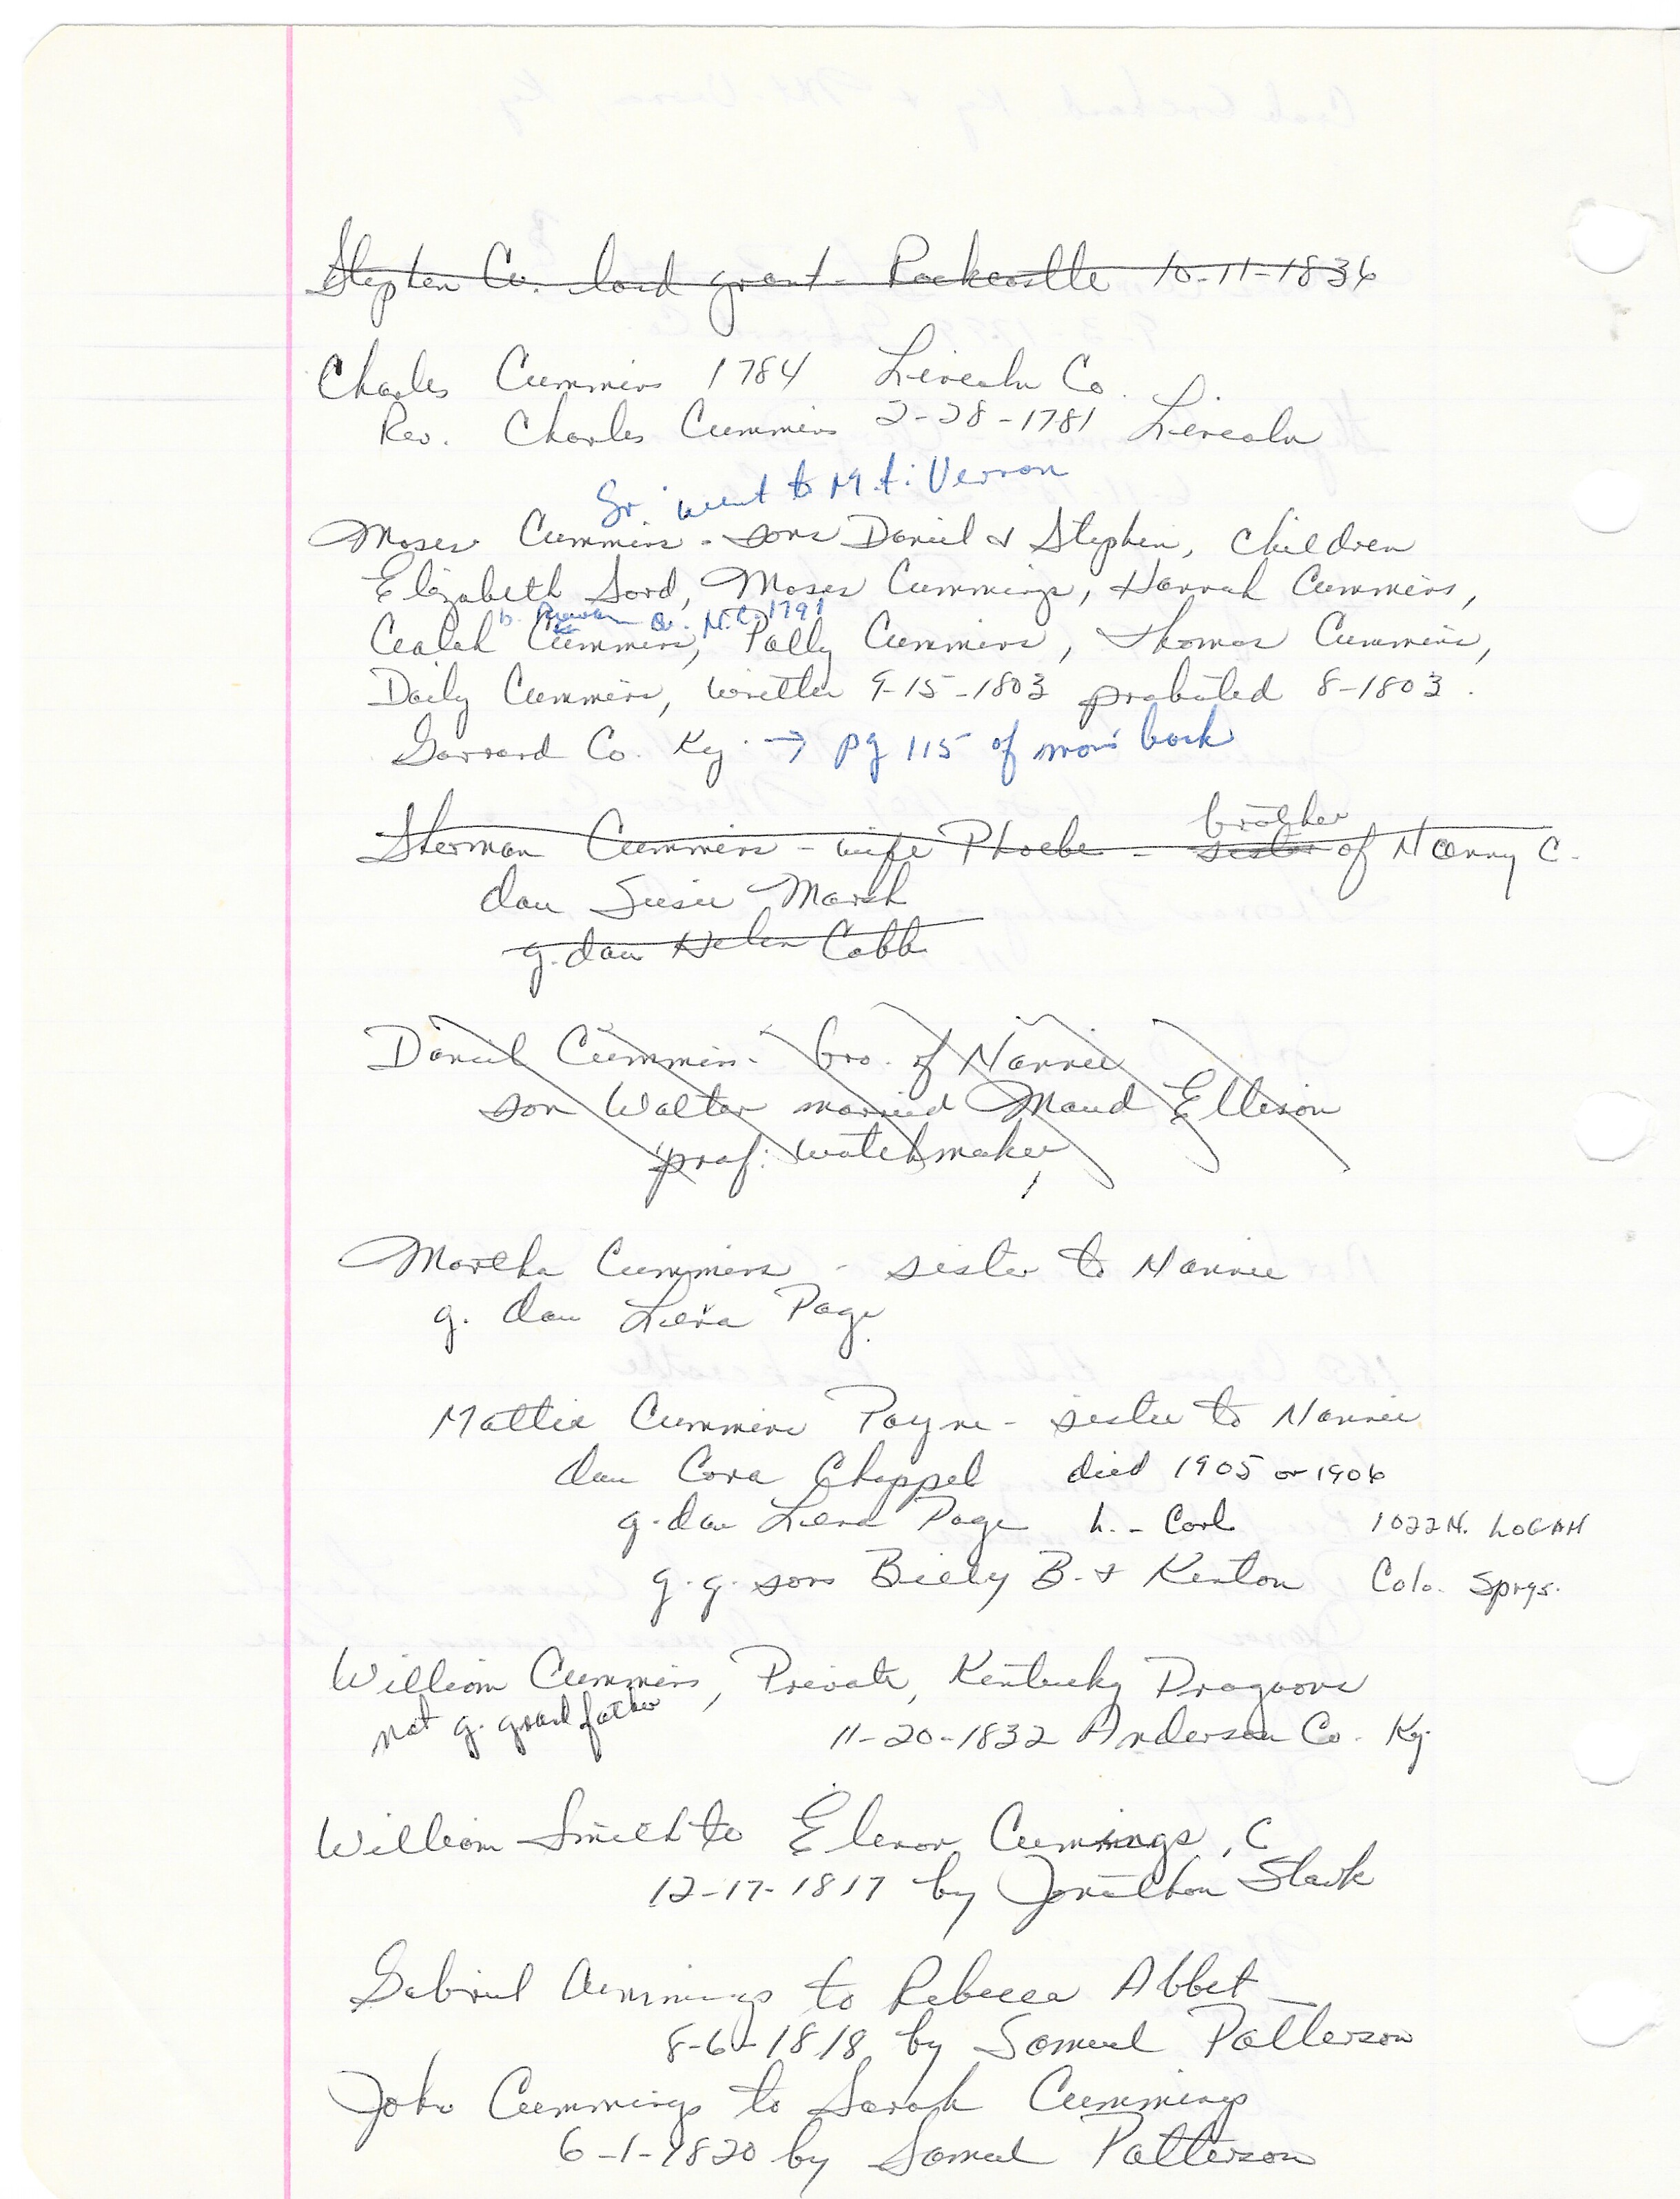 Stephen Co. land grant - Rockcastle 10-11-1836
Charles Cummins 1784 Lincoln Co.
Rev. Charles Cummins 2-28-1781 Lincoln
Sr. went to Mt. Vernon
Moses Cummins - sons Daniel & Stephen, Children
Elizabeth Sord, Moses Cummings, Hannah Cummins,
b. Rowan Co. N.C. 1791
Cealah Cummins, Polly Cummins, Thomas Cummins,
Daily Cummins, written 9-15-1803 probated 8-1803.
Garrard Co. Ky. → pg 115 of mom's book
brother
Sherman Cummins - wife Phoebe - sister of Nanny C.
dau Susie Marsh
g. dau Helen Cobb
Daniel Cummins - bro. of Nannie
son Walter married Maud Ellison
prof. watchmaker
Martha Cummins - sister to Nannie
g. dau Page
Mattie Cummins Payne - sister to Nannie
dau Cora Chappel died 1905 or 1906
g. dau Page h. - Carl 1022 N. LOGAN
g.g. sons Billy B. & Kenton Colo. Sprgs.
William Cummins, Private, Kentucky Dragoons
not g. grand father
11-20-1832 Anderson Co. Ky.
William Smith to Elenor Cummings, C
12-17-1817 by Jonathon Stark
Gabriel Cummings to Rebecca Abbet
8-6-1818 by Samuel Patterson
John Cummings to Sarah Cummings
6-1-1820 by Samuel Patterson